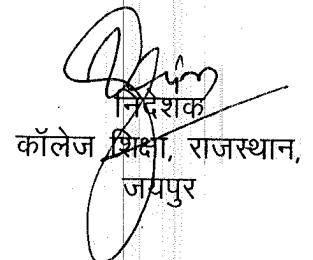 निदेशक
कॉलेज शिक्षा, राजस्थान,
जयपुर